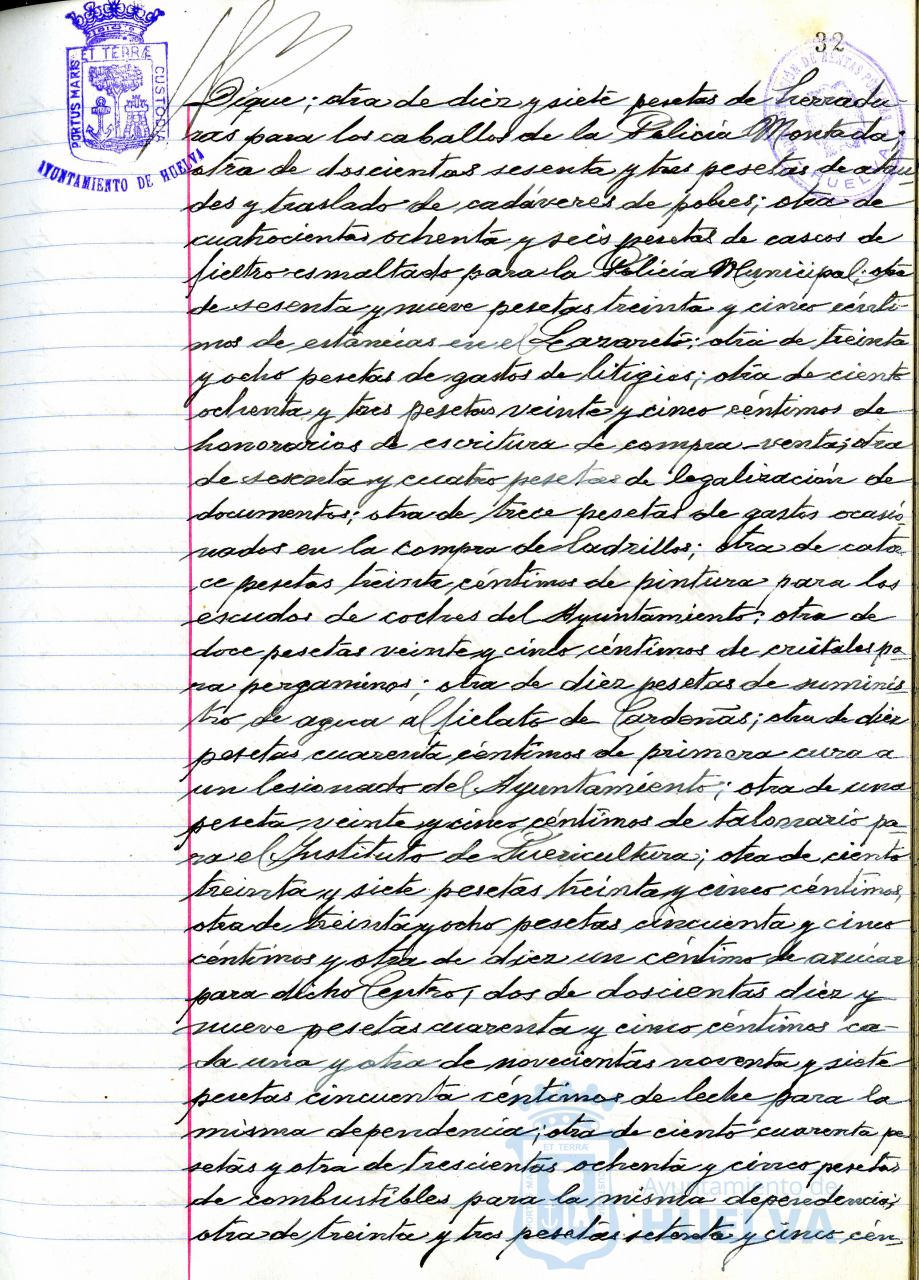 32
PORTUS MARIS ET TERRÆ CUSTODIA
AYUNTAMIENTO DE HUELVA
HUELVA
Dique; otra de diez y siete pesetas de herradu-
ras para los caballos de la Policía Montada;
otra de doscientas sesenta y tres pesetas de atau-
des y traslado de cadáveres de pobres; otra de
cuatrocientas ochenta y seis pesetas de cascos de
fieltro esmaltado para la Policía Municipal; otra
de sesenta y nueve pesetas treinta y cinco cénti-
mos de estancias en el Lazareto; otra de treinta
y ocho pesetas de gastos de litigios; otra de ciento
ochenta y tres pesetas veinte y cinco céntimos de
honorarios de escritura de compra-venta; otra
de sesenta y cuatro pesetas de legalización de
documentos; otra de trece pesetas de gastos ocasio
nados en la compra de ladrillos; otra de cator-
ce pesetas treinta céntimos de pintura para los
escudos de coches del Ayuntamiento; otra de
doce pesetas veinte y cinco céntimos de cristales pa-
ra pergaminos; otra de diez pesetas de suminis-
tro de agua al fielato de Cardeñas; otra de diez
pesetas cuarenta céntimos de primera cura a
un lesionado del Ayuntamiento; otra de una
peseta veinte y cinco céntimos de talonario pa-
ra el Instituto de Puericultura; otra de ciento
treinta y siete pesetas treinta y cinco céntimos,
otra de treinta y ocho pesetas cincuenta y cinco
céntimos y otra de diez un céntimo de azúcar
para dicho Centro; dos de doscientas diez y
nueve pesetas cuarenta y cinco céntimos ca-
da una y otra de novecientas noventa y siete
pesetas cincuenta céntimos de leche para la
misma dependencia; otra de ciento cuarenta pe
setas y otra de trescientas ochenta y cinco pesetas
de combustibles para la misma dependencia;
otra de treinta y tres pesetas setenta y cinco cén-
Ayuntamiento de
HUELVA